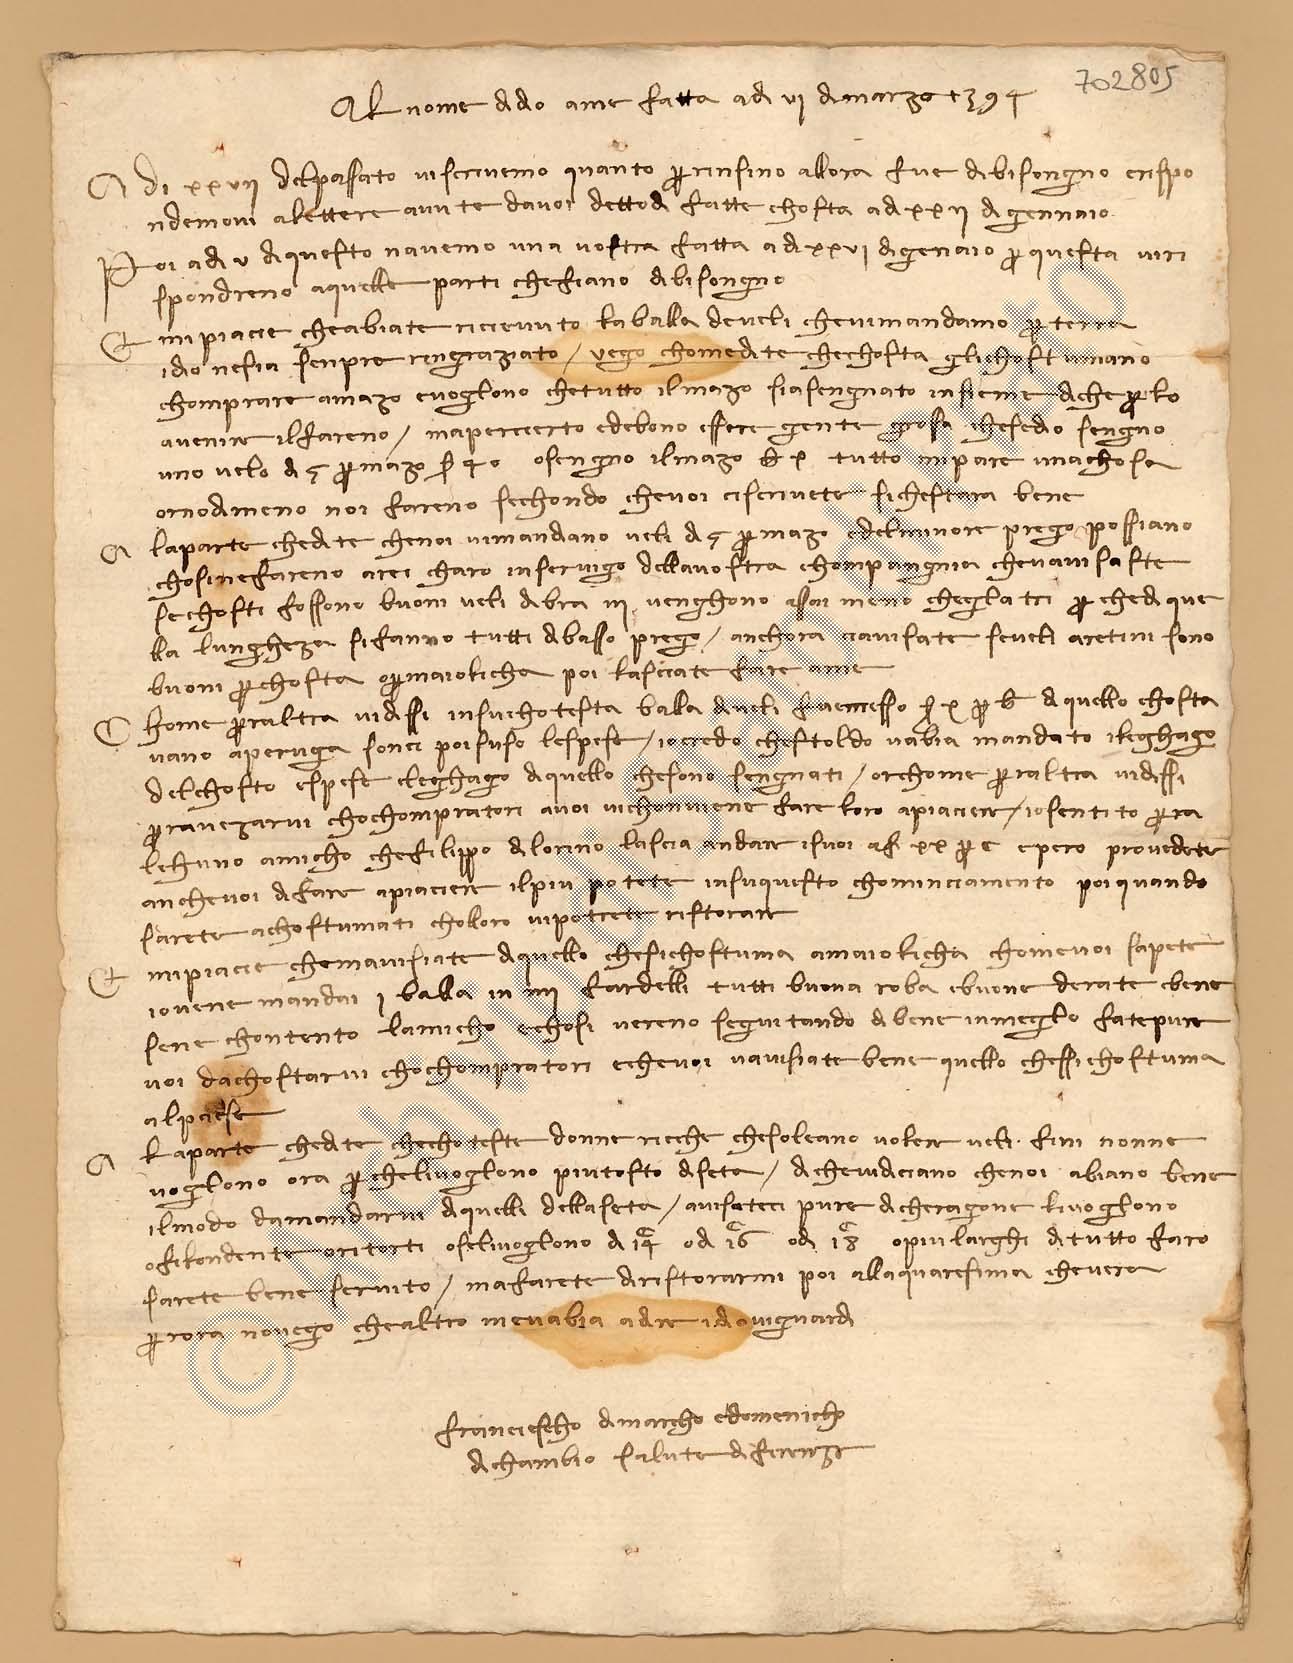 702805
Al nome di dio ame fatta adi vi di marzo 1394
A di xxvij del passato vi scrivemo quanto per insino allora fue di bisongno e rispo
ndemovi a lettere avute da voi detto di fatte chosta adi xxij di gennaio
Poi adi v di questo navemo una vostra fatta adi xxvj di genaio per questa viri
spondreno a quelle parti che fiano di bisongno
Et mi piacie che abiate ricievuto la balla de veli che vi mandamo per terra
idio ne sia senpre ringraziato / vego chome dite che chosta gli chostumano
chomprare a mazo e voglono che tutto il mazo sia sengnato insieme di che per lo
avenire il fareno / ma per cierto e debono essere gente grosa che se dio sengno
uno velo di 5 per mazo s 40 o sengno il mazo lb x tutto mi pare una chosa
or no di meno noi fareno sechondo che voi ci scrivete siche stara bene
A la parte che dite che noi vi mandiano veli di 5 per mazo e del minore prego possiano
chosi ne fareno arei charo in servigo della vostra chompangnia che mavisaste
se chosti fossono buoni veli di bra iij venghono assai meno che gla tri per che di que
lla lungheza si fanno tutti di basso prego / anchora ciavisate se veli aretini sono
buoni per chosta o per maiolicha poi lasciate fare a me
C home per altra vi dissi in su chotesta balla di veli fue messo s x per lb di quello chosta
vano a peruga sonci poi suso le spese / io credo che stoldo vabia mandato i leghago
del chosto e spese e leghago di quello che sono sengnati / or chome per altra vi dissi
per avezarvi cho chompratori a voi vi chonviene fare loro apiaciere / io sentito per a
lchuno amicho che filippo di lorino lascia andare i suoi a f xx per c e pero provedete
anche voi di fare apiaciere il piu potete in su questo chominciamento poi quando
sarete achostumati cholloro vi potrete ristorare
Et mi piacie che mavisiate di quello che si chostuma a maiolicha chome voi sapete
io vene mandai j balla in iiij fardelli tutti buona roba e buone derate e bene
sene chontento lamicho e chosi vereno seguitando di bene in meglo fate pure
voi dachostarvi cho chompratori e che voi navisiate bene quello chessi chostuma
al paese
A la parte che dite che choteste donne ricche che soleano volere veli fini nonne
voglono ora per che li voglono piu tosto di seta / di che vi diciano che noi abiano bene
il modo da mandarvi di quelli della seta / avisateci pure di che ragone li voglono
o filondente o ritorti o se li voglono di 14 o di 16 o di 18 o piu larghi di tutto faro
sarete bene servito / ma farete di ristorarmi poi alla quaresima che vera
per ora no vego che altro me vabia a dire idio vi guardi
Franciescho di marcho e domenicho
di chambio salute di firenze